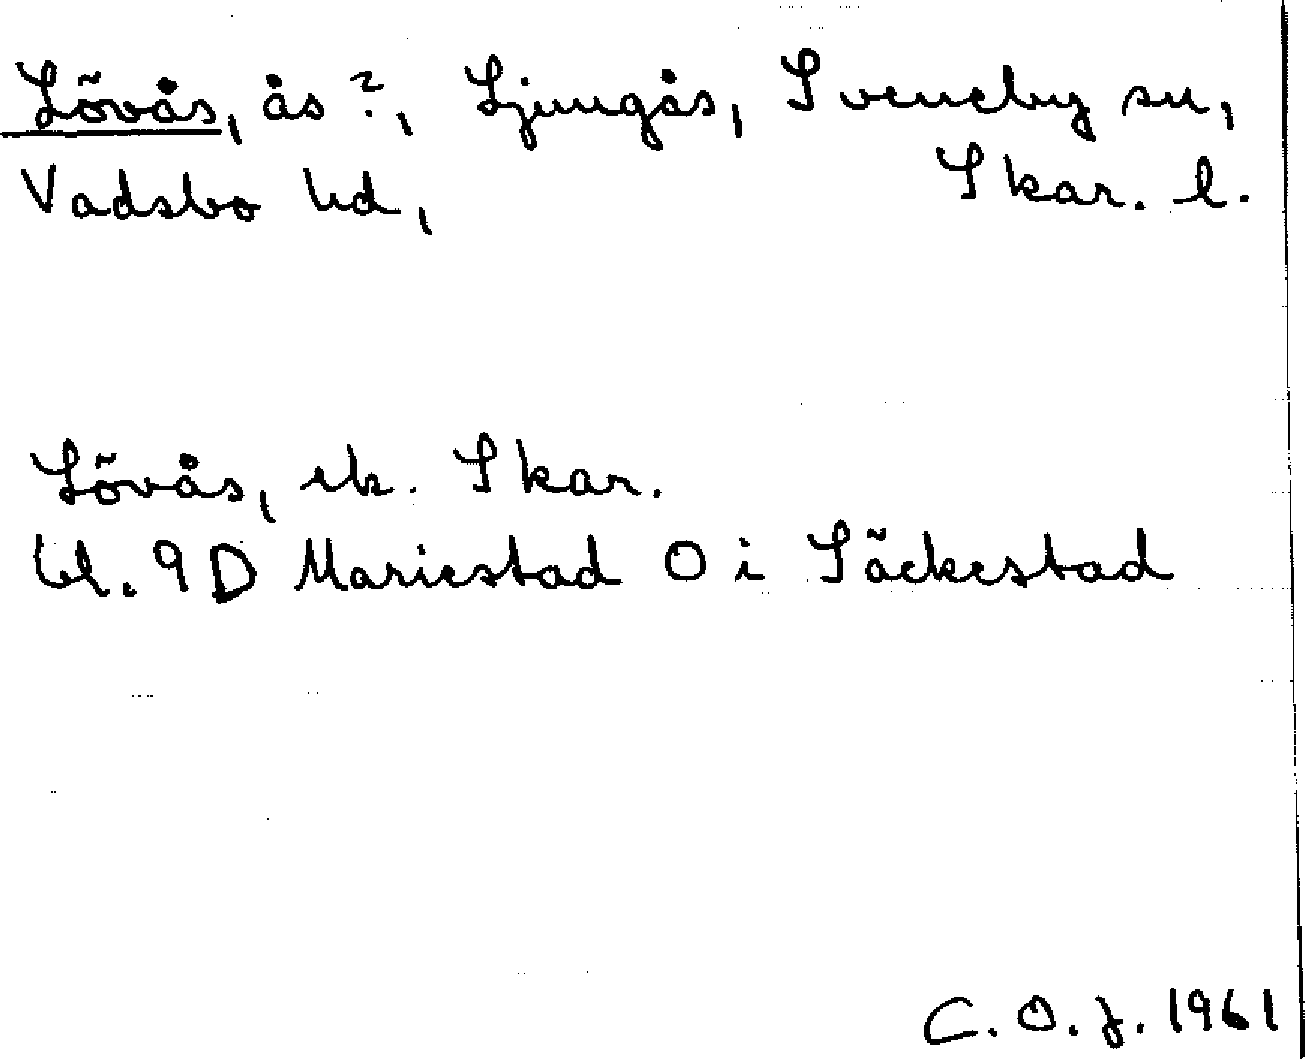 Lövås, ås?, Ljungås, Sveneby sn,
Vadsbo hd, Skar. l.
Lövås, ek. Skar.
bl. 9D Mariestad O i Säckestad
C. O. J. 1961